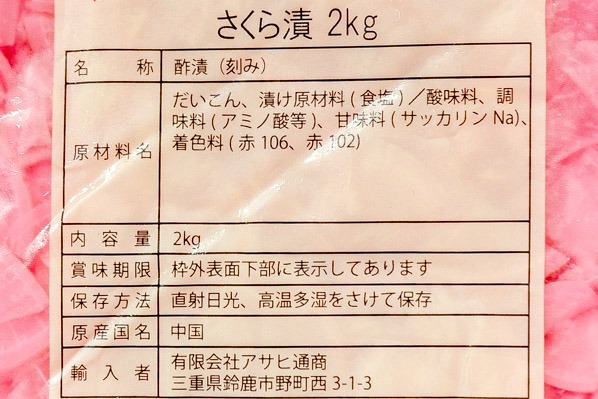 さくら漬 2kg
名称 酢漬（刻み）
原材料名 だいこん、漬け原材料(食塩)／酸味料、調
味料(アミノ酸等)、甘味料(サッカリンNa)、
着色料(赤106、赤102)
内容量 2kg
賞味期限 枠外表面下部に表示してあります
保存方法 直射日光、高温多湿をさけて保存
原産国名 中国
輸入者 有限会社アサヒ通商
三重県鈴鹿市野町西3-1-3